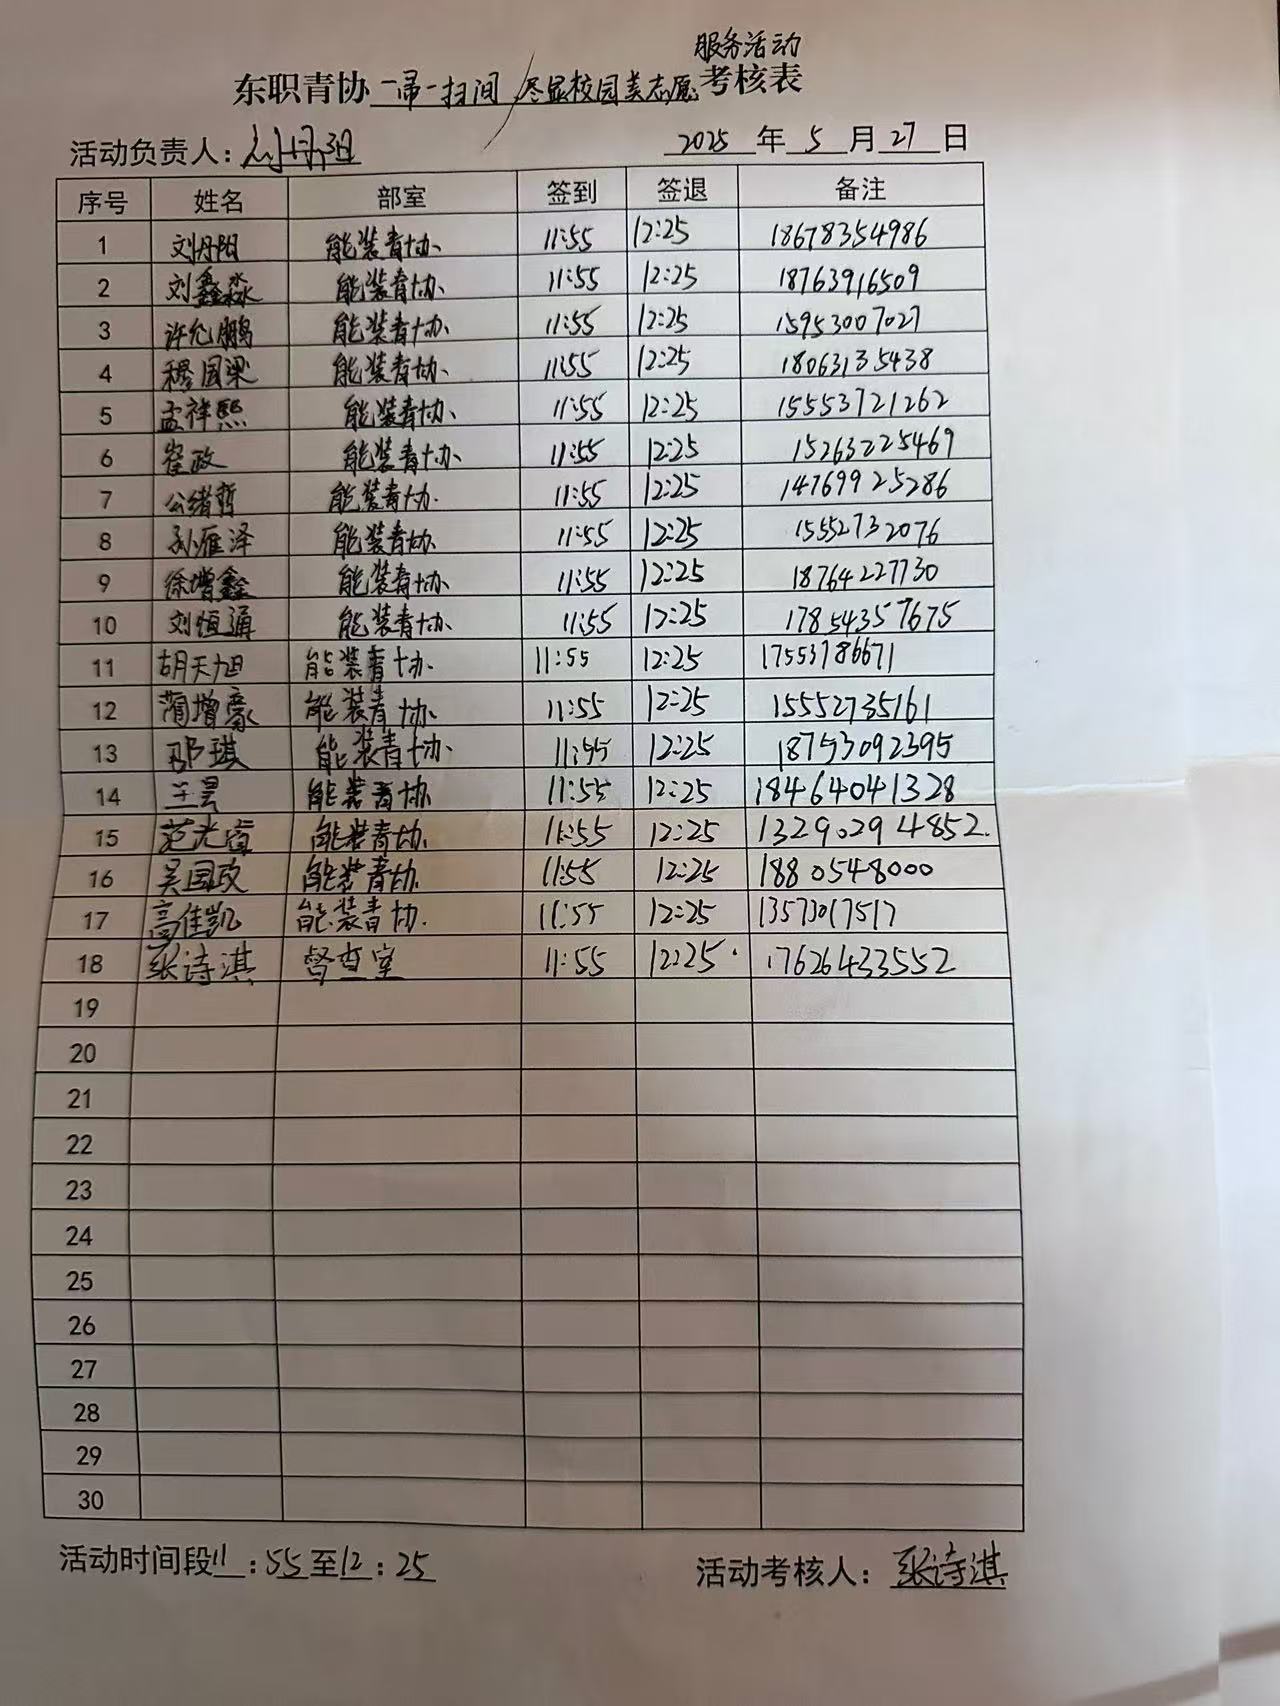 服务活动
东职青协 一帚一扫间 尽显校园美志愿 考核表
活动负责人：刘丹阳 2025 年 5 月 27 日
序号 姓名 部室 签到 签退 备注
1 刘丹阳 能装青协 11:55 12:25 18678354986
2 刘鑫淼 能装青协 11:55 12:25 18763916509
3 许允鹏 能装青协 11:55 12:25 15953007027
4 穆国梁 能装青协 11:55 12:25 18063135438
5 孟祥熙 能装青协 11:55 12:25 15553721262
6 崔政 能装青协 11:55 12:25 15263225469
7 公绪哲 能装青协 11:55 12:25 14769925286
8 孙雁泽 能装青协 11:55 12:25 15552732076
9 徐增鑫 能装青协 11:55 12:25 18764227730
10 刘恒通 能装青协 11:55 12:25 17854357675
11 胡天旭 能装青协 11:55 12:25 17553786671
12 蔺增豪 能装青协 11:55 12:25 15552735161
13 邵琪 能装青协 11:55 12:25 18753092395
14 王昙 能装青协 11:55 12:25 18464041328
15 范光 能装青协 11:55 12:25 13290294852.
16 吴国政 能装青协 11:55 12:25 1880548000
17 高佳凯 能装青协 11:55 12:25 13573017517
18 张诗淇 督查室 11:55 12:25 17626433552
19
20
21
22
23
24
25
26
27
28
29
30
活动时间段 11：55 至 12：25 活动考核人：张诗淇